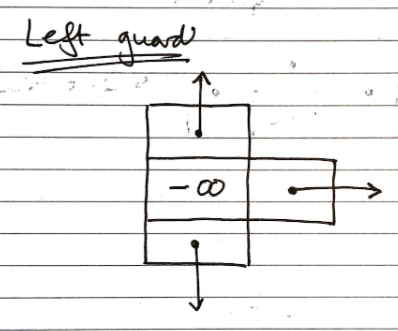 Left guard
-∞